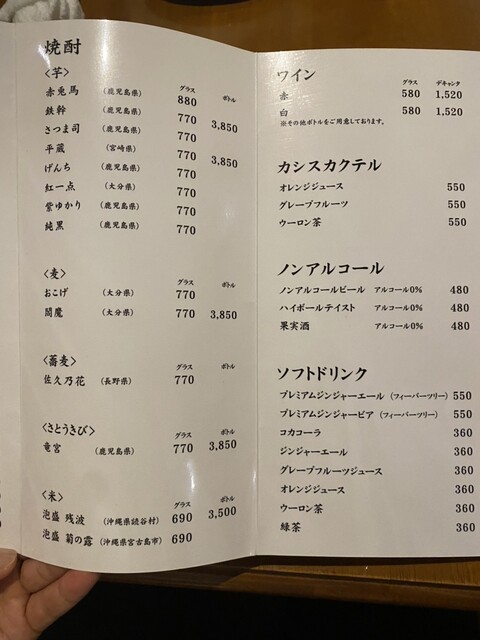 焼酎
〈芋〉 グラス ボトル
赤兎馬 (鹿児島県) 880
鉄幹 (鹿児島県) 770
さつま司 (鹿児島県) 770 3,850
平蔵 (宮崎県) 770
げんち (鹿児島県) 770 3,850
紅一点 (大分県) 770
紫ゆかり (鹿児島県) 770
純黒 (鹿児島県) 770
〈麦〉 グラス ボトル
おこげ (大分県) 770
閻魔 (大分県) 770 3,850
〈蕎麦〉 グラス ボトル
佐久乃花 (長野県) 770
〈さとうきび〉 グラス ボトル
竜宮 (鹿児島県) 770 3,850
〈米〉 グラス ボトル
泡盛 残波 (沖縄県読谷村) 690 3,500
泡盛 菊の露 (沖縄県宮古島市) 690
ワイン グラス デキャンタ
赤 580 1,520
白 580 1,520
※その他ボトルをご用意しております。
カシスカクテル
オレンジジュース 550
グレープフルーツ 550
ウーロン茶 550
ノンアルコール
ノンアルコールビール アルコール0% 480
ハイボールテイスト アルコール0% 480
果実酒 アルコール0% 480
ソフトドリンク
プレミアムジンジャーエール (フィーバーツリー) 550
プレミアムジンジャービア (フィーバーツリー) 550
コカコーラ 360
ジンジャーエール 360
グレープフルーツジュース 360
オレンジジュース 360
ウーロン茶 360
緑茶 360